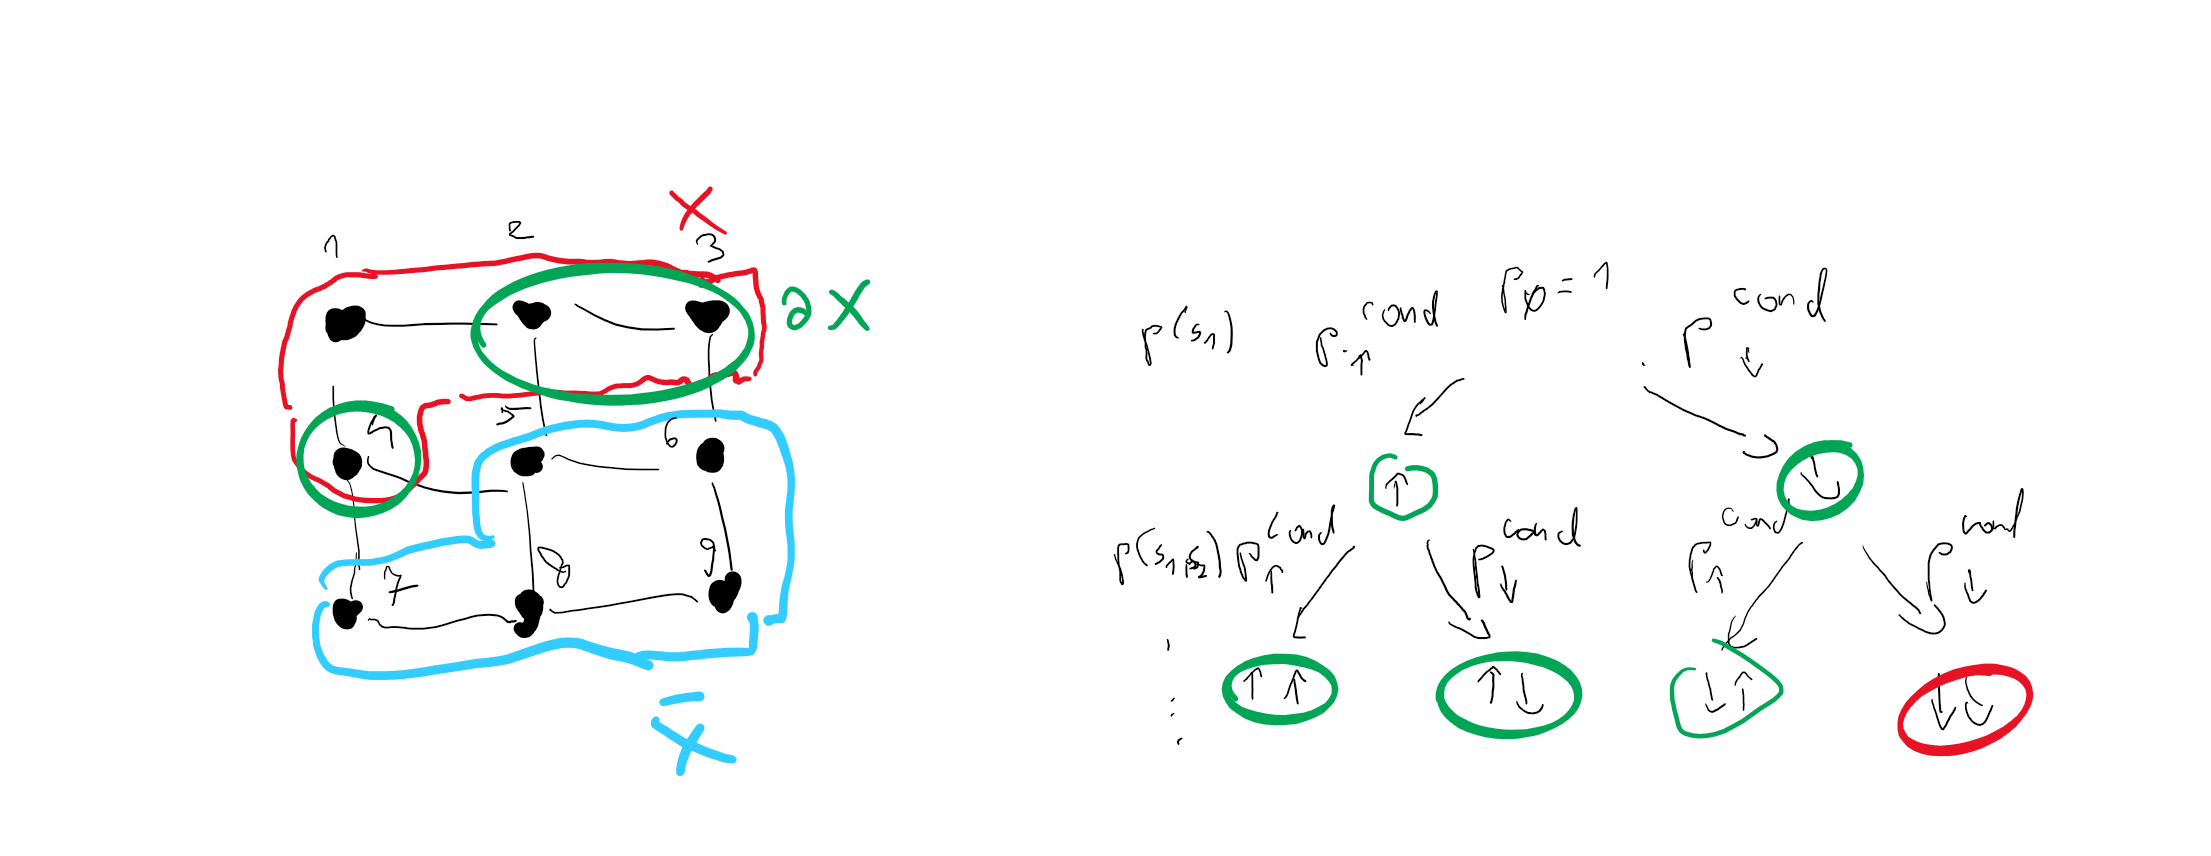 X
1 2 3
∂X
4 5 6
7 8 9
X̄
p_∅ = 1
p(s₁) p_↑^cond p_↓^cond
↑ ↓
p(s₁,s₂) p_↑^cond p_↓^cond p_↑^cond p_↓^cond
⋮ ↑↑ ↑↓ ↓↑ ↓↓